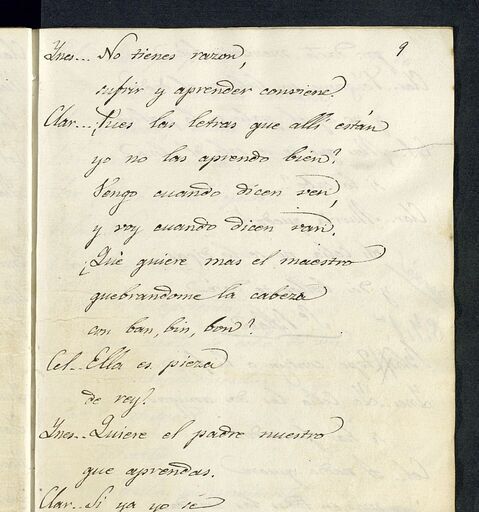 9
Ynes... No tienes razon,
sufrir y aprender conviene.
Clar... ¿Pues las letras que allí están
yo no las aprendo bien?
Vengo cuando dicen ven,
y voy cuando dicen van.
¿Què quiere mas el maestro
quebrandome la cabeza
con ban, bin, bon?
Cel... Ella es pieza
de rey?
Ynes... Quiere el padre nuestro
que aprendas.
Clar... Si ya yo sè